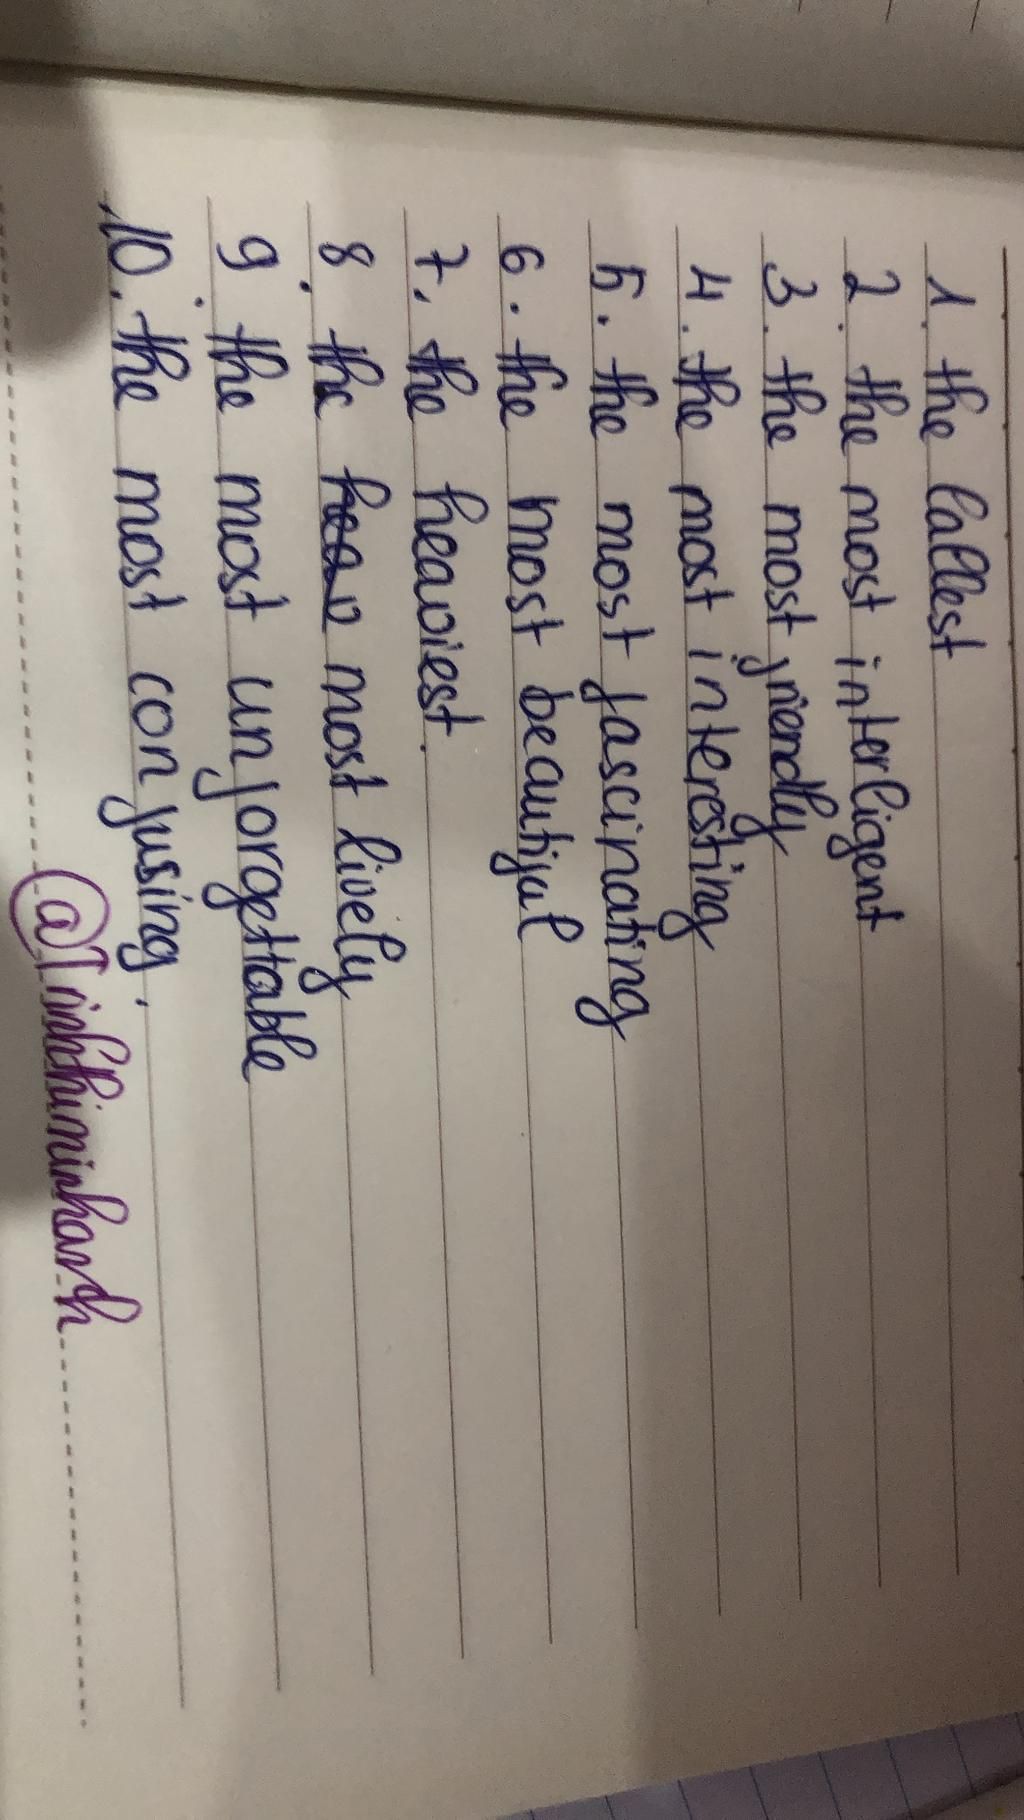 1. the tallest
2. the most interligent
3. the most friendly
4. the most interesting
5. the most fascinating
6. the most beautiful
7. the heaviest.
8. the most lively
9. the most unforgettable
10. the most confusing.
@Trinhthiminhanh